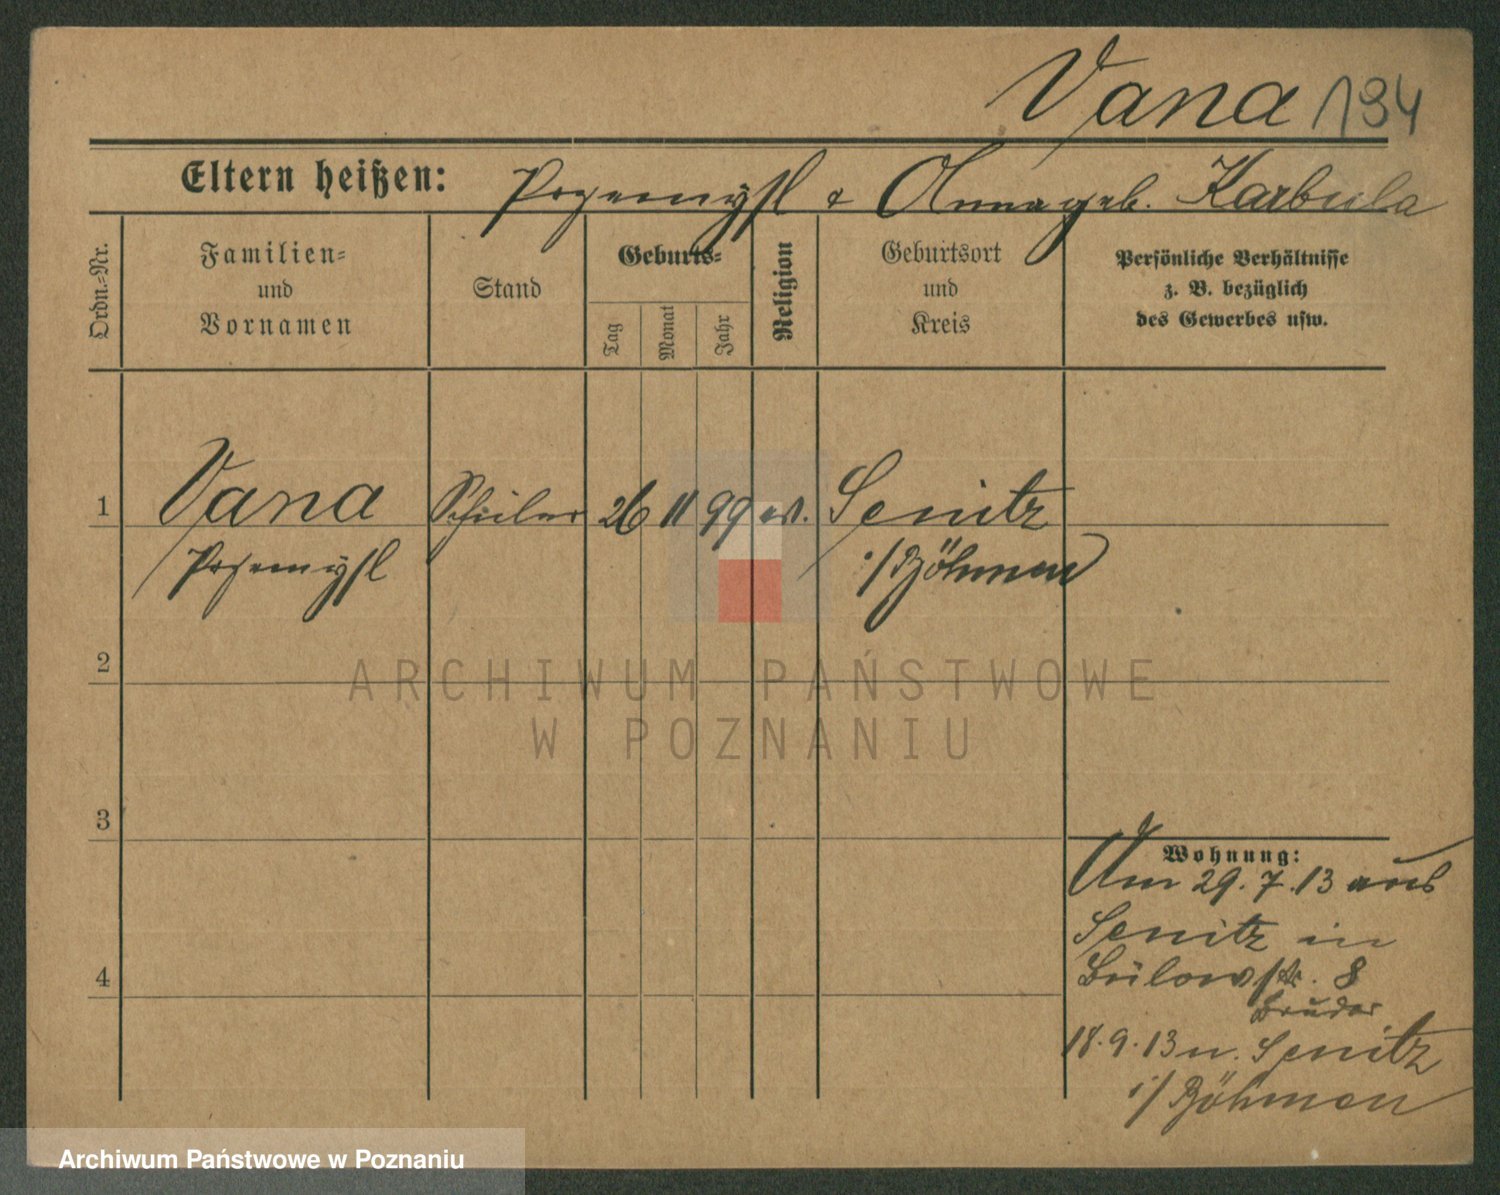 Vana 134
Eltern heißen: Przemysl & Anna geb. Karbula
Ordn.-Nr.
Familien-
und
Vornamen
Stand
Geburts-
Tag
Monat
Jahr
Religion
Geburtsort
und
Kreis
Persönliche Verhältnisse
z. B. bezüglich
des Gewerbes usw.
1 Vana Schüler 26 11 99 ev. Senitz
Przemysl i/Böhmen
2
3
4
Wohnung:
Am 29.7.13 aus
Senitz in
Bülowstr. 8
Bruder
18.9.13 n. Senitz
i/Böhmen
ARCHIWUM PAŃSTWOWE
W POZNANIU
Archiwum Państwowe w Poznaniu